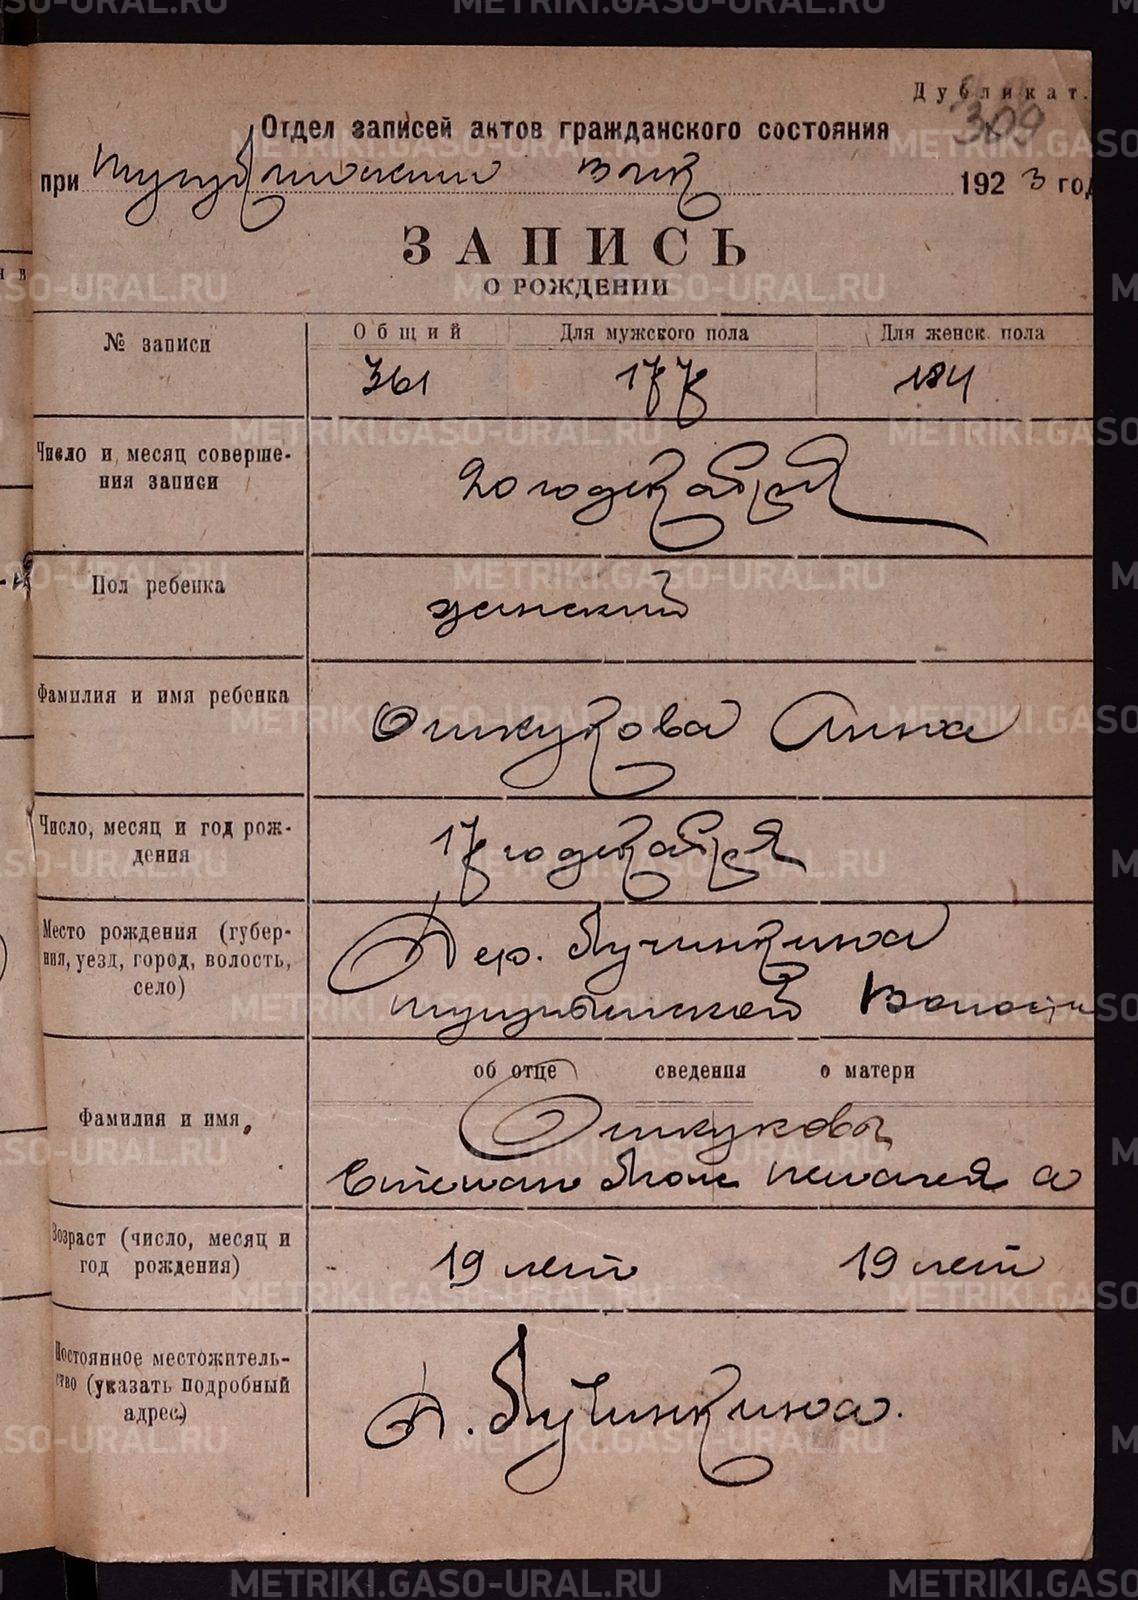 Дубликат.
309
Отдел записей актов гражданского состояния
при Тугулымский вик 1923 год
ЗАПИСЬ
О РОЖДЕНИИ
№ записи
Общий Для мужского пола Для женск. пола
361 177 184
Число и месяц соверше-
ния записи
20 го декабря
Пол ребенка
женский
Фамилия и имя ребенка
Ошкукова Анна
Число, месяц и год рож-
дения
17 го декабря
Место рождения (губер-
ния, уезд, город, волость,
село)
Дер. Лучинкина
Тугулымской Волости
об отце сведения о матери
Фамилия и имя
Ошкуковы
Степан Пелагея
Возраст (число, месяц и
год рождения)
19 лет 19 лет
Постоянное местожитель-
ство (указать подробный
адрес)
Д. Лучинкина.
METRIKI.GASO-URAL.RU